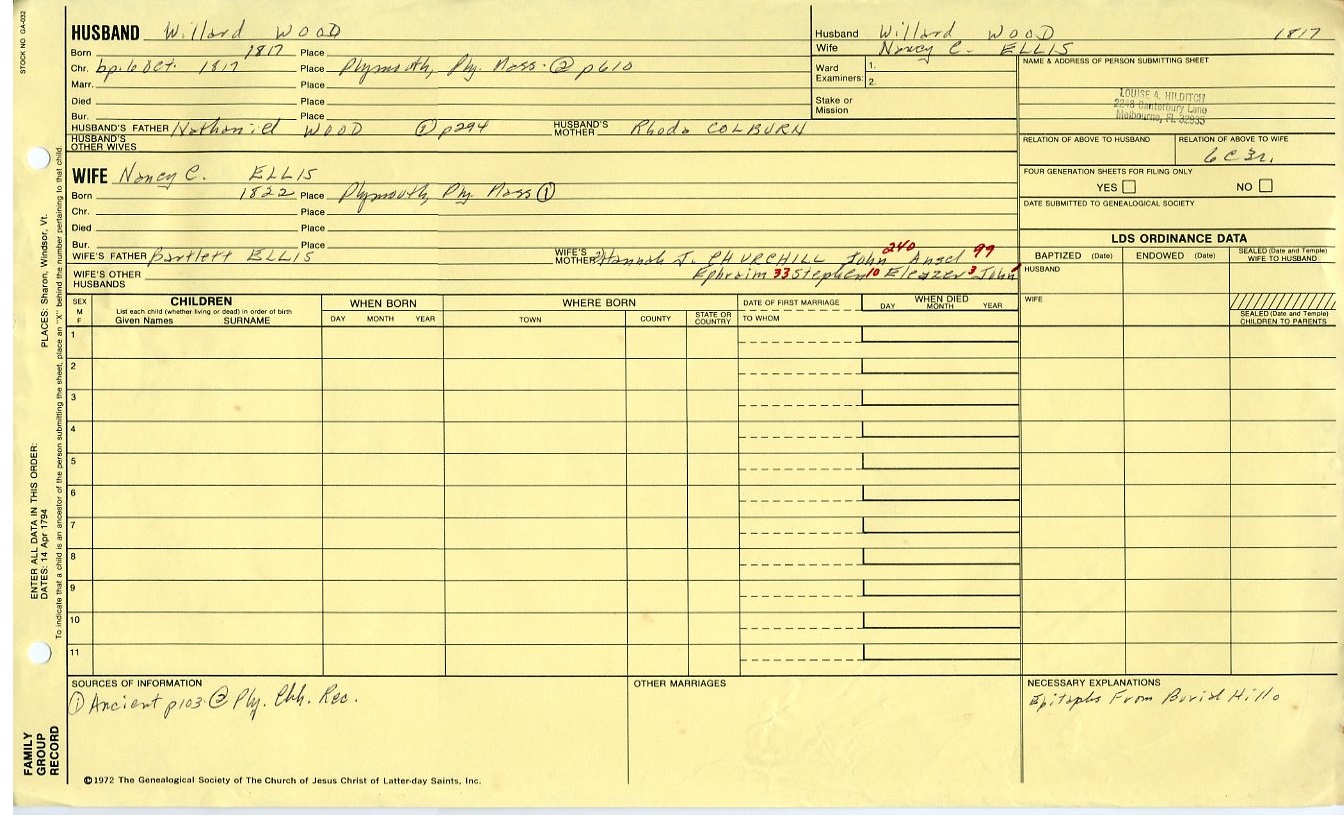 STOCK NO. GA-032
PLACES: Sharon, Windsor, Vt.
ENTER ALL DATA IN THIS ORDER:
DATES: 14 Apr 1794
To indicate that a child is an ancestor of the person submitting the sheet, place an "X" behind the number pertaining to that child.
FAMILY
GROUP
RECORD
HUSBAND Willard WOOD
Born 1817 Place
Chr. bp. 6 Oct. 1817 Place Plymouth, Ply. Mass. ② p610
Marr. Place
Died Place
Bur. Place
HUSBAND'S FATHER Nathaniel WOOD ① p294 HUSBAND'S MOTHER Rhoda COLBURN
HUSBAND'S OTHER WIVES
WIFE Nancy C. ELLIS
Born 1822 Place Plymouth, Ply. Mass ①
Chr. Place
Died Place
Bur. Place
WIFE'S FATHER Bartlett ELLIS WIFE'S MOTHER Hannah J. CHURCHILL John 240 Ansel 99
Ephraim 33 Stephen 10 Eleazer 3 John 1
WIFE'S OTHER HUSBANDS
Husband Willard WOOD 1817
Wife Nancy C. ELLIS
Ward Examiners: 1.
2.
Stake or Mission
NAME & ADDRESS OF PERSON SUBMITTING SHEET
LOUISE A. HILDITCH
2248 Canterbury Lane
Melbourne, FL 32935
RELATION OF ABOVE TO HUSBAND RELATION OF ABOVE TO WIFE
6C3r.
FOUR GENERATION SHEETS FOR FILING ONLY
YES NO
DATE SUBMITTED TO GENEALOGICAL SOCIETY
LDS ORDINANCE DATA
BAPTIZED (Date) ENDOWED (Date) SEALED (Date and Temple) WIFE TO HUSBAND
HUSBAND
WIFE
SEALED (Date and Temple) CHILDREN TO PARENTS
SEX M F
CHILDREN
List each child (whether living or dead) in order of birth
Given Names SURNAME
WHEN BORN
DAY MONTH YEAR
WHERE BORN
TOWN COUNTY STATE OR COUNTRY
DATE OF FIRST MARRIAGE
TO WHOM
WHEN DIED
DAY MONTH YEAR
1
2
3
4
5
6
7
8
9
10
11
SOURCES OF INFORMATION
① Ancient p103. ② Ply. Chh. Rec.
OTHER MARRIAGES
NECESSARY EXPLANATIONS
Epitaphs From Burial Hill
©1972 The Genealogical Society of The Church of Jesus Christ of Latter-day Saints, Inc.